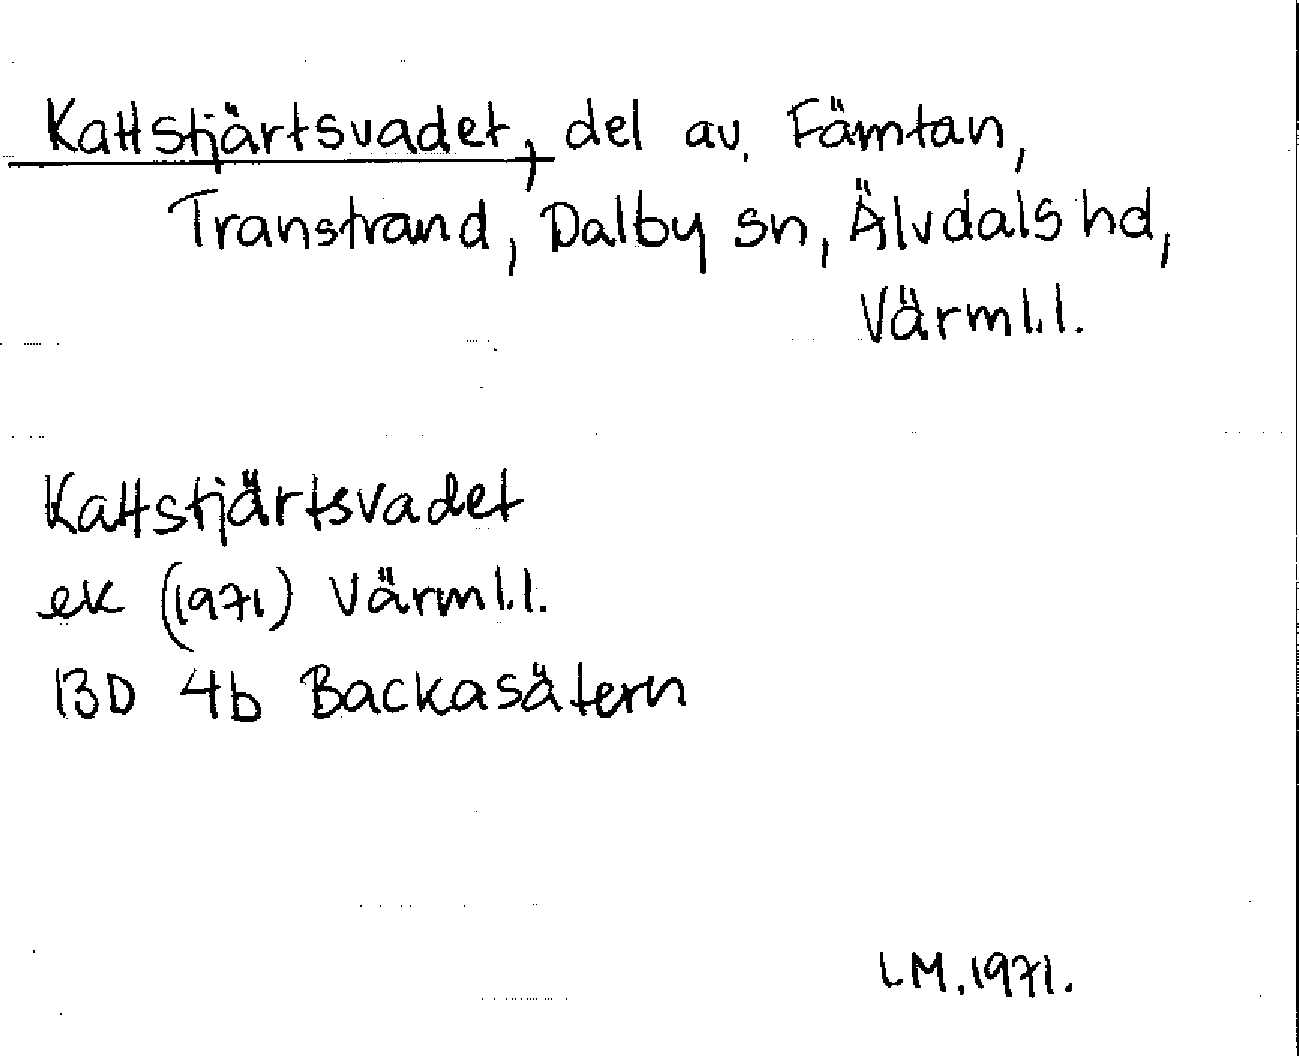 Kattstjärtsvadet, del av Fämtan,
Transtrand, Dalby sn, Älvdals hd,
Värml.l.
Kattstjärtsvadet
ek (1971) Värml.l.
13D 4b Backasätern
LM.1971.